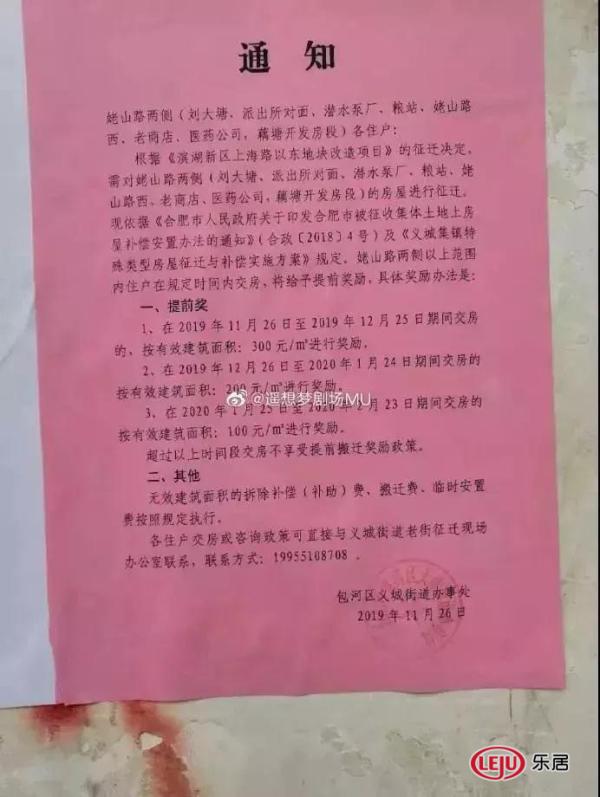 通知
姥山路两侧（刘大塘、派出所对面、潜水泵厂、粮站、姥山路
西、老商店、医药公司，藕塘开发房段）各住户：
根据《滨湖新区上海路以东地块改造项目》的征迁决定，
需对姥山路两侧（刘大塘、派出所对面、潜水泵厂、粮站、姥
山路西、老商店、医药公司，藕塘开发房段）的房屋进行征迁。
现依据《合肥市人民政府关于印发合肥市被征收集体土地上房
屋补偿安置办法的通知》（合政〔2018〕4号）及《义城集镇特
殊类型房屋征迁与补偿实施方案》规定，姥山路两侧以上范围
内住户在规定时间内交房，将给予提前奖励，具体奖励办法是：
一、提前奖
1、在2019年11月26日至2019年12月25日期间交房
的，按有效建筑面积：300元/㎡进行奖励。
2、在2019年12月26日至2020年1月24日期间交房的
按有效建筑面积：200元/㎡进行奖励。
@遥想梦剧场MU
3、在2020年1月25日至2020年2月23日期间交房的
按有效建筑面积：100元/㎡进行奖励。
超过以上时间段交房不享受提前搬迁奖励政策。
二、其他
无效建筑面积的拆除补偿（补助）费、搬迁费、临时安置
费按照规定执行。
各住户交房或咨询政策可直接与义城街道老街征迁现场
办公室联系，联系方式：19955108708。
包河区义城街道办事处
2019年11月26日
LEJU 乐居